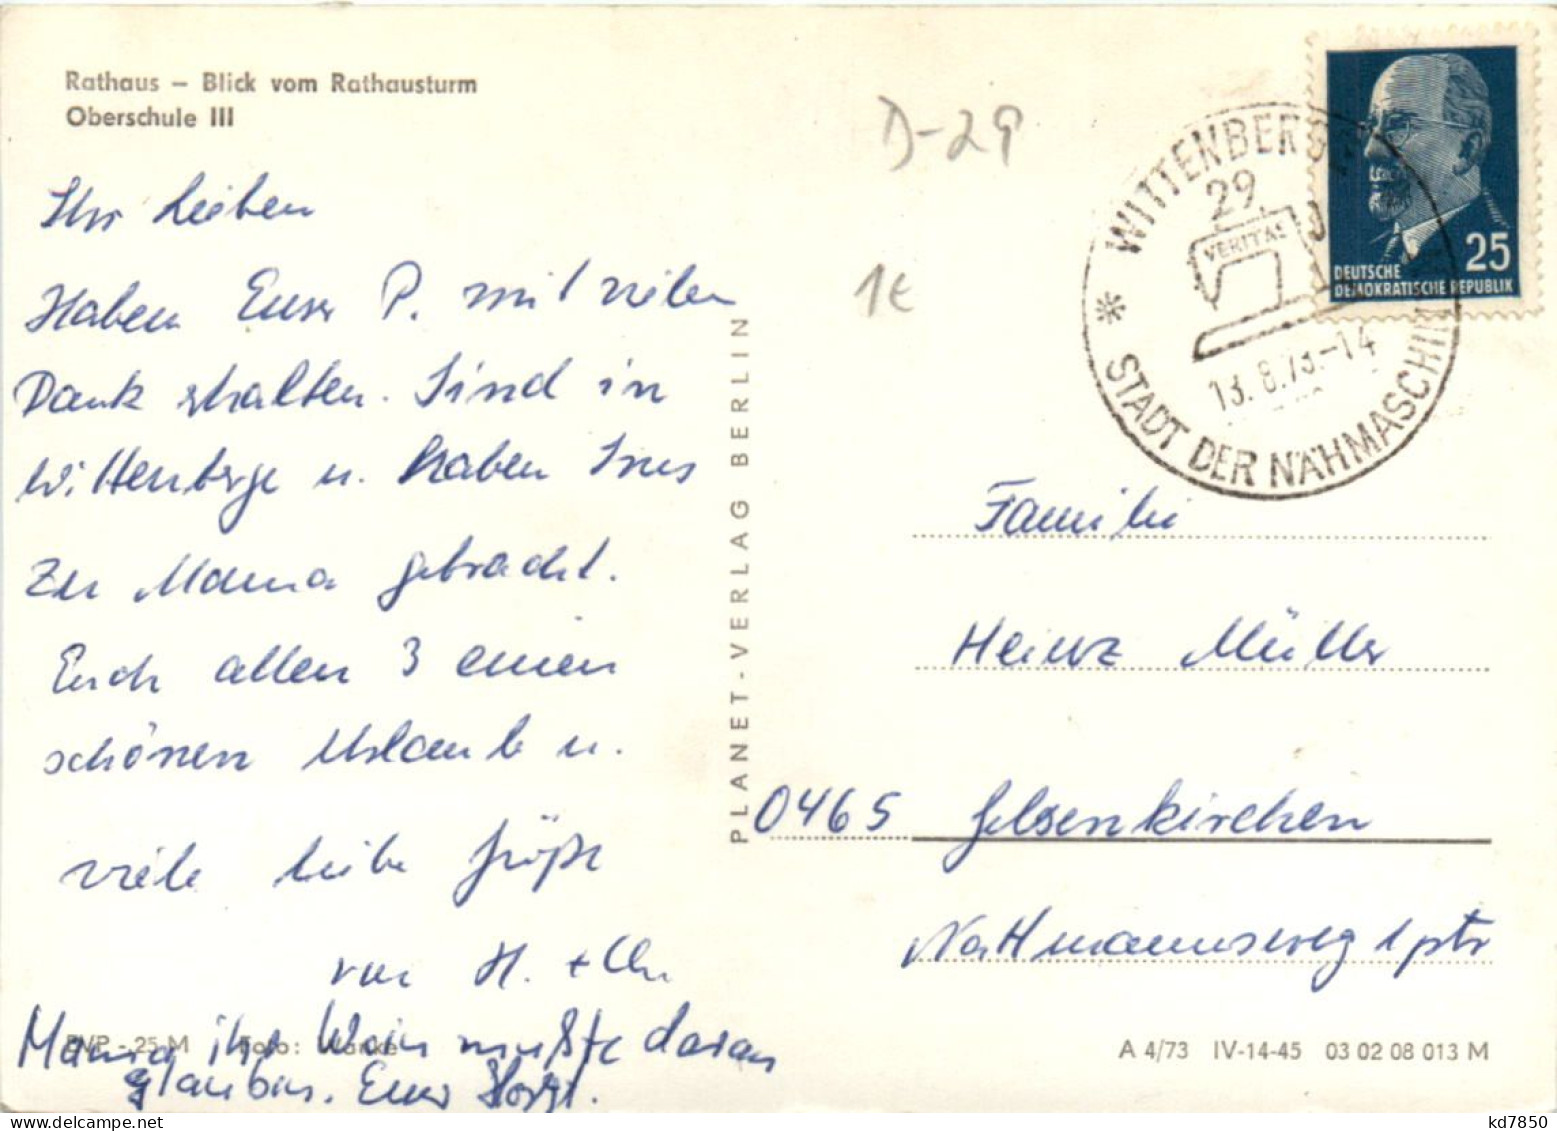 Rathaus – Blick vom Rathausturm
Oberschule III
Ihr Lieben
Haben Euer P. mit vielen
Dank erhalten. Sind in
Wittenberge u. haben Ines
zu Mama gebracht.
Euch allen 3 einen
schönen Urlaub u.
viele liebe Grüße
von H. +
Mama ihr Wein mußte daran
glauben. Euer Horst.
EVP - 25 M Foto: Wanke
PLANET-VERLAG BERLIN
D-29
1€
WITTENBERGE
29.
VERITAS
13.8.73.-14
* STADT DER NÄHMASCHIN
25
DEUTSCHE
DEMOKRATISCHE REPUBLIK
Familie
Heinz Müller
0465 Gelsenkirchen
Nattmannsweg 1 ptr
A 4/73 IV-14-45 03 02 08 013 M
www.delcampe.net
kd7850